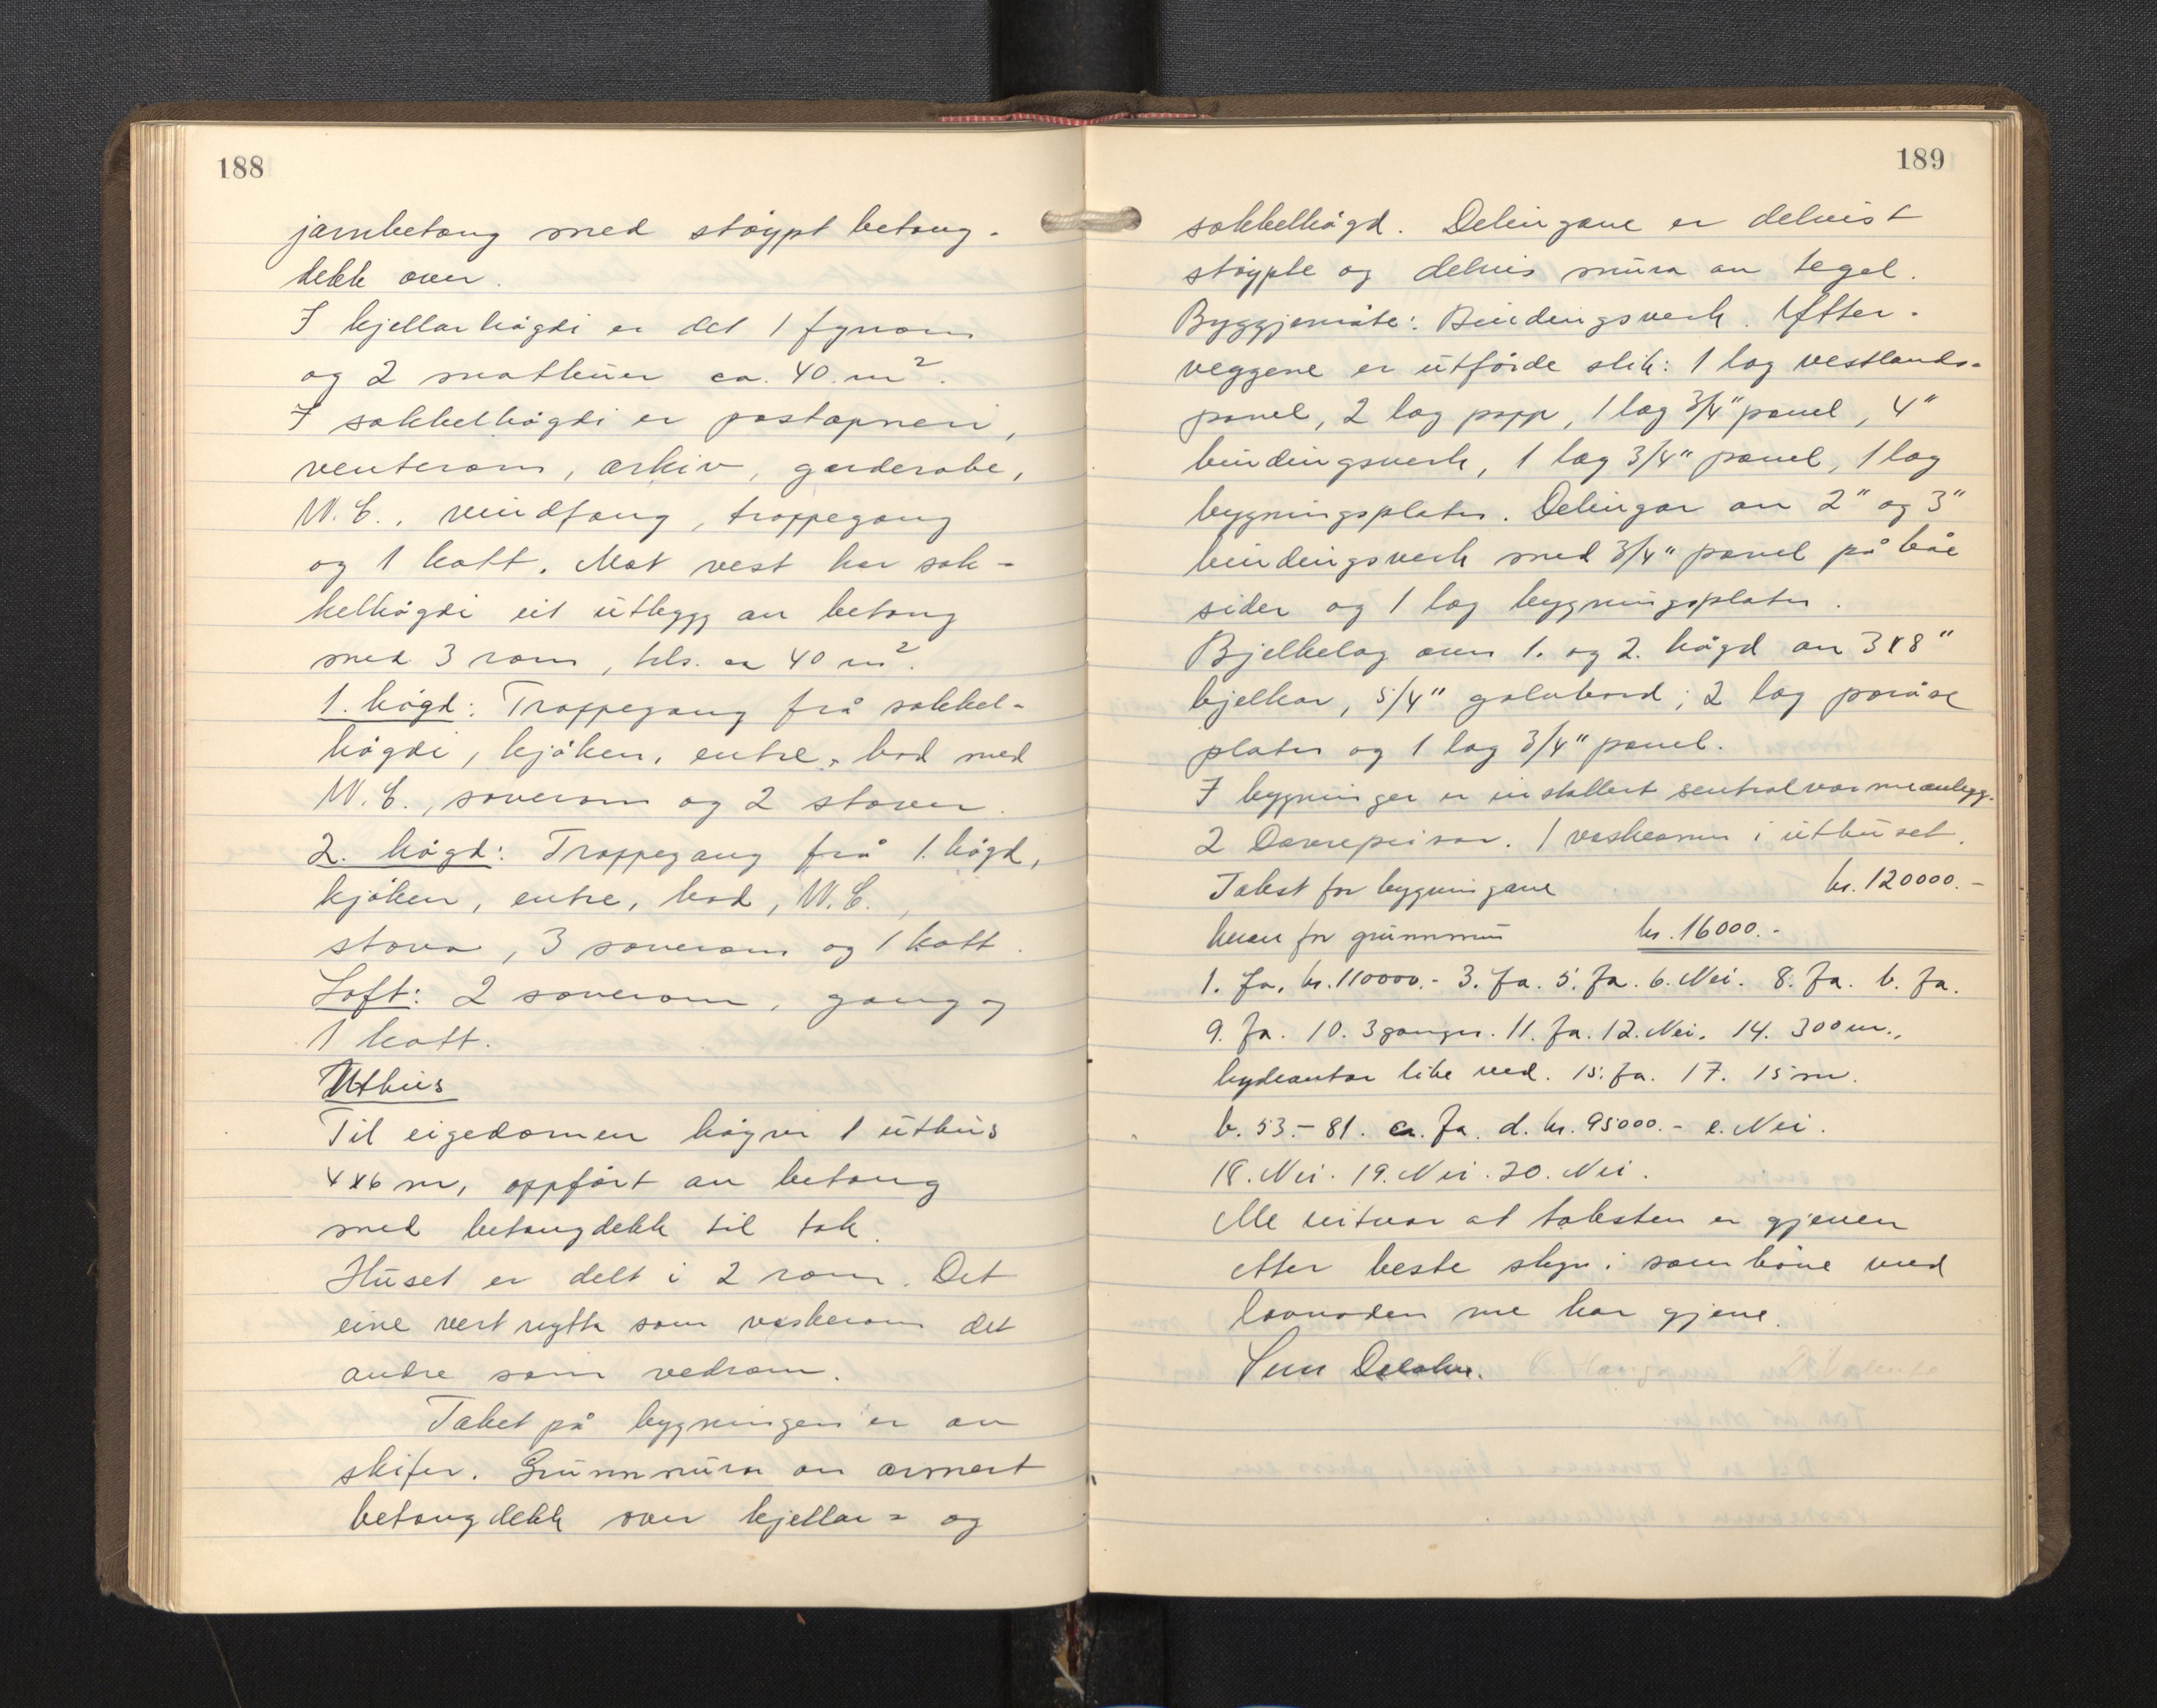 188
jarnbetong med støypt betong-
dekk over.
I kjellarhögdi er det 1 fyrrom
og 2 matbuer ca. 40 m².
I sokkelhögdi er postopneri,
venterom, arkiv, garderobe,
W.C., vindfang, trappegang
og 1 kott. Mot vest har sok-
kelhögdi eit utbygg av betong
med 3 rom, tils. ca 40 m².
1. högd: Trappegang frå sokkel-
högdi, kjöken, entre, bod med
W.C., soverom og 2 stover.
2. högd: Trappegang frå 1. högd,
kjöken, entre, bod, W.C.,
stova, 3 soverom og 1 kott.
Loft: 2 soverom, gang og
1 kott.
Uthus
Til eigedomen höyrer 1 uthus
4x6 m, oppfört av betong
med betongdekk til tak.
Huset er delt i 2 rom. Det
eine vert nytta som vaskerom det
andre som vedrom.
Taket på bygningen er av
skifer. Grunnmura av armert
betongdekk over kjellar- og
189
sokkelhögd. Delingane er delvist
støypte og delvis mura av tegel.
Byggjemåte: Bindingsverk. Ytter-
veggene er utförde slik: 1 lag vestlands-
panel, 2 lag papp, 1 lag 3/4" panel, 4"
bindingsverk, 1 lag 3/4" panel, 1 lag
bygningsplater. Delingar av 2" og 3"
bindingsverk med 3/4" panel på båe
sider og 1 lag bygningsplater.
Bjelkelag over 1. og 2. högd av 3x8"
bjelkar, 5/4" golvbord; 2 lag poröse
plater og 1 lag 3/4" panel.
I bygningen er installert sentralvarmeanlegg.
2 Dovrepeisar. 1 vaskeomn i uthuset.
Takst for bygningane kr. 120000.-
herav for grunnmur kr. 16000.-
1. Ja, kr. 110000.- 3. Ja. 5. Ja. 6. Nei. 8. Ja. b. Ja.
9. Ja. 10. 3 ganger. 11. Ja. 12. Nei. 14. 300 m.,
hydrantar like ved. 15. Ja. 17. 15 m.
b. 53.- 81. c. Ja. d. kr. 95000.- e. Nei.
18. Nei. 19. Nei. 20. Nei.
Me vitnar at taksten er gjeven
etter beste skyn i samhöve med
lovnaden me har gjeve.